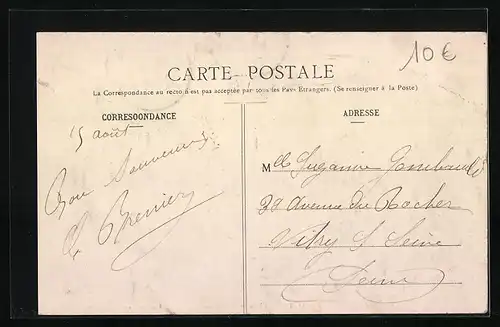 10€
CARTE POSTALE
La Correspondance au recto n'est pas acceptée par tous les Pays Etrangers. (Se renseigner à la Poste)
CORRESOONDANCE
ADRESSE
15 août
Bon Souvenir
Mlle Suzanne
38 Avenue du Rocher
Vitry S Seine
Seine